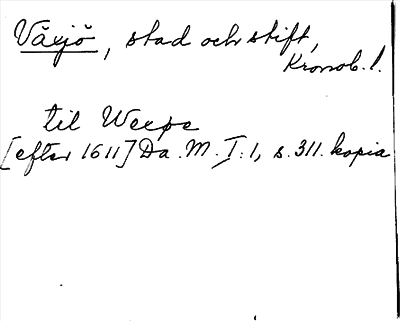 Växjö, stad och stift,
Kronob. l.
til Wexpe
[efter 1611] Da. M. I:1, s. 311. kopia